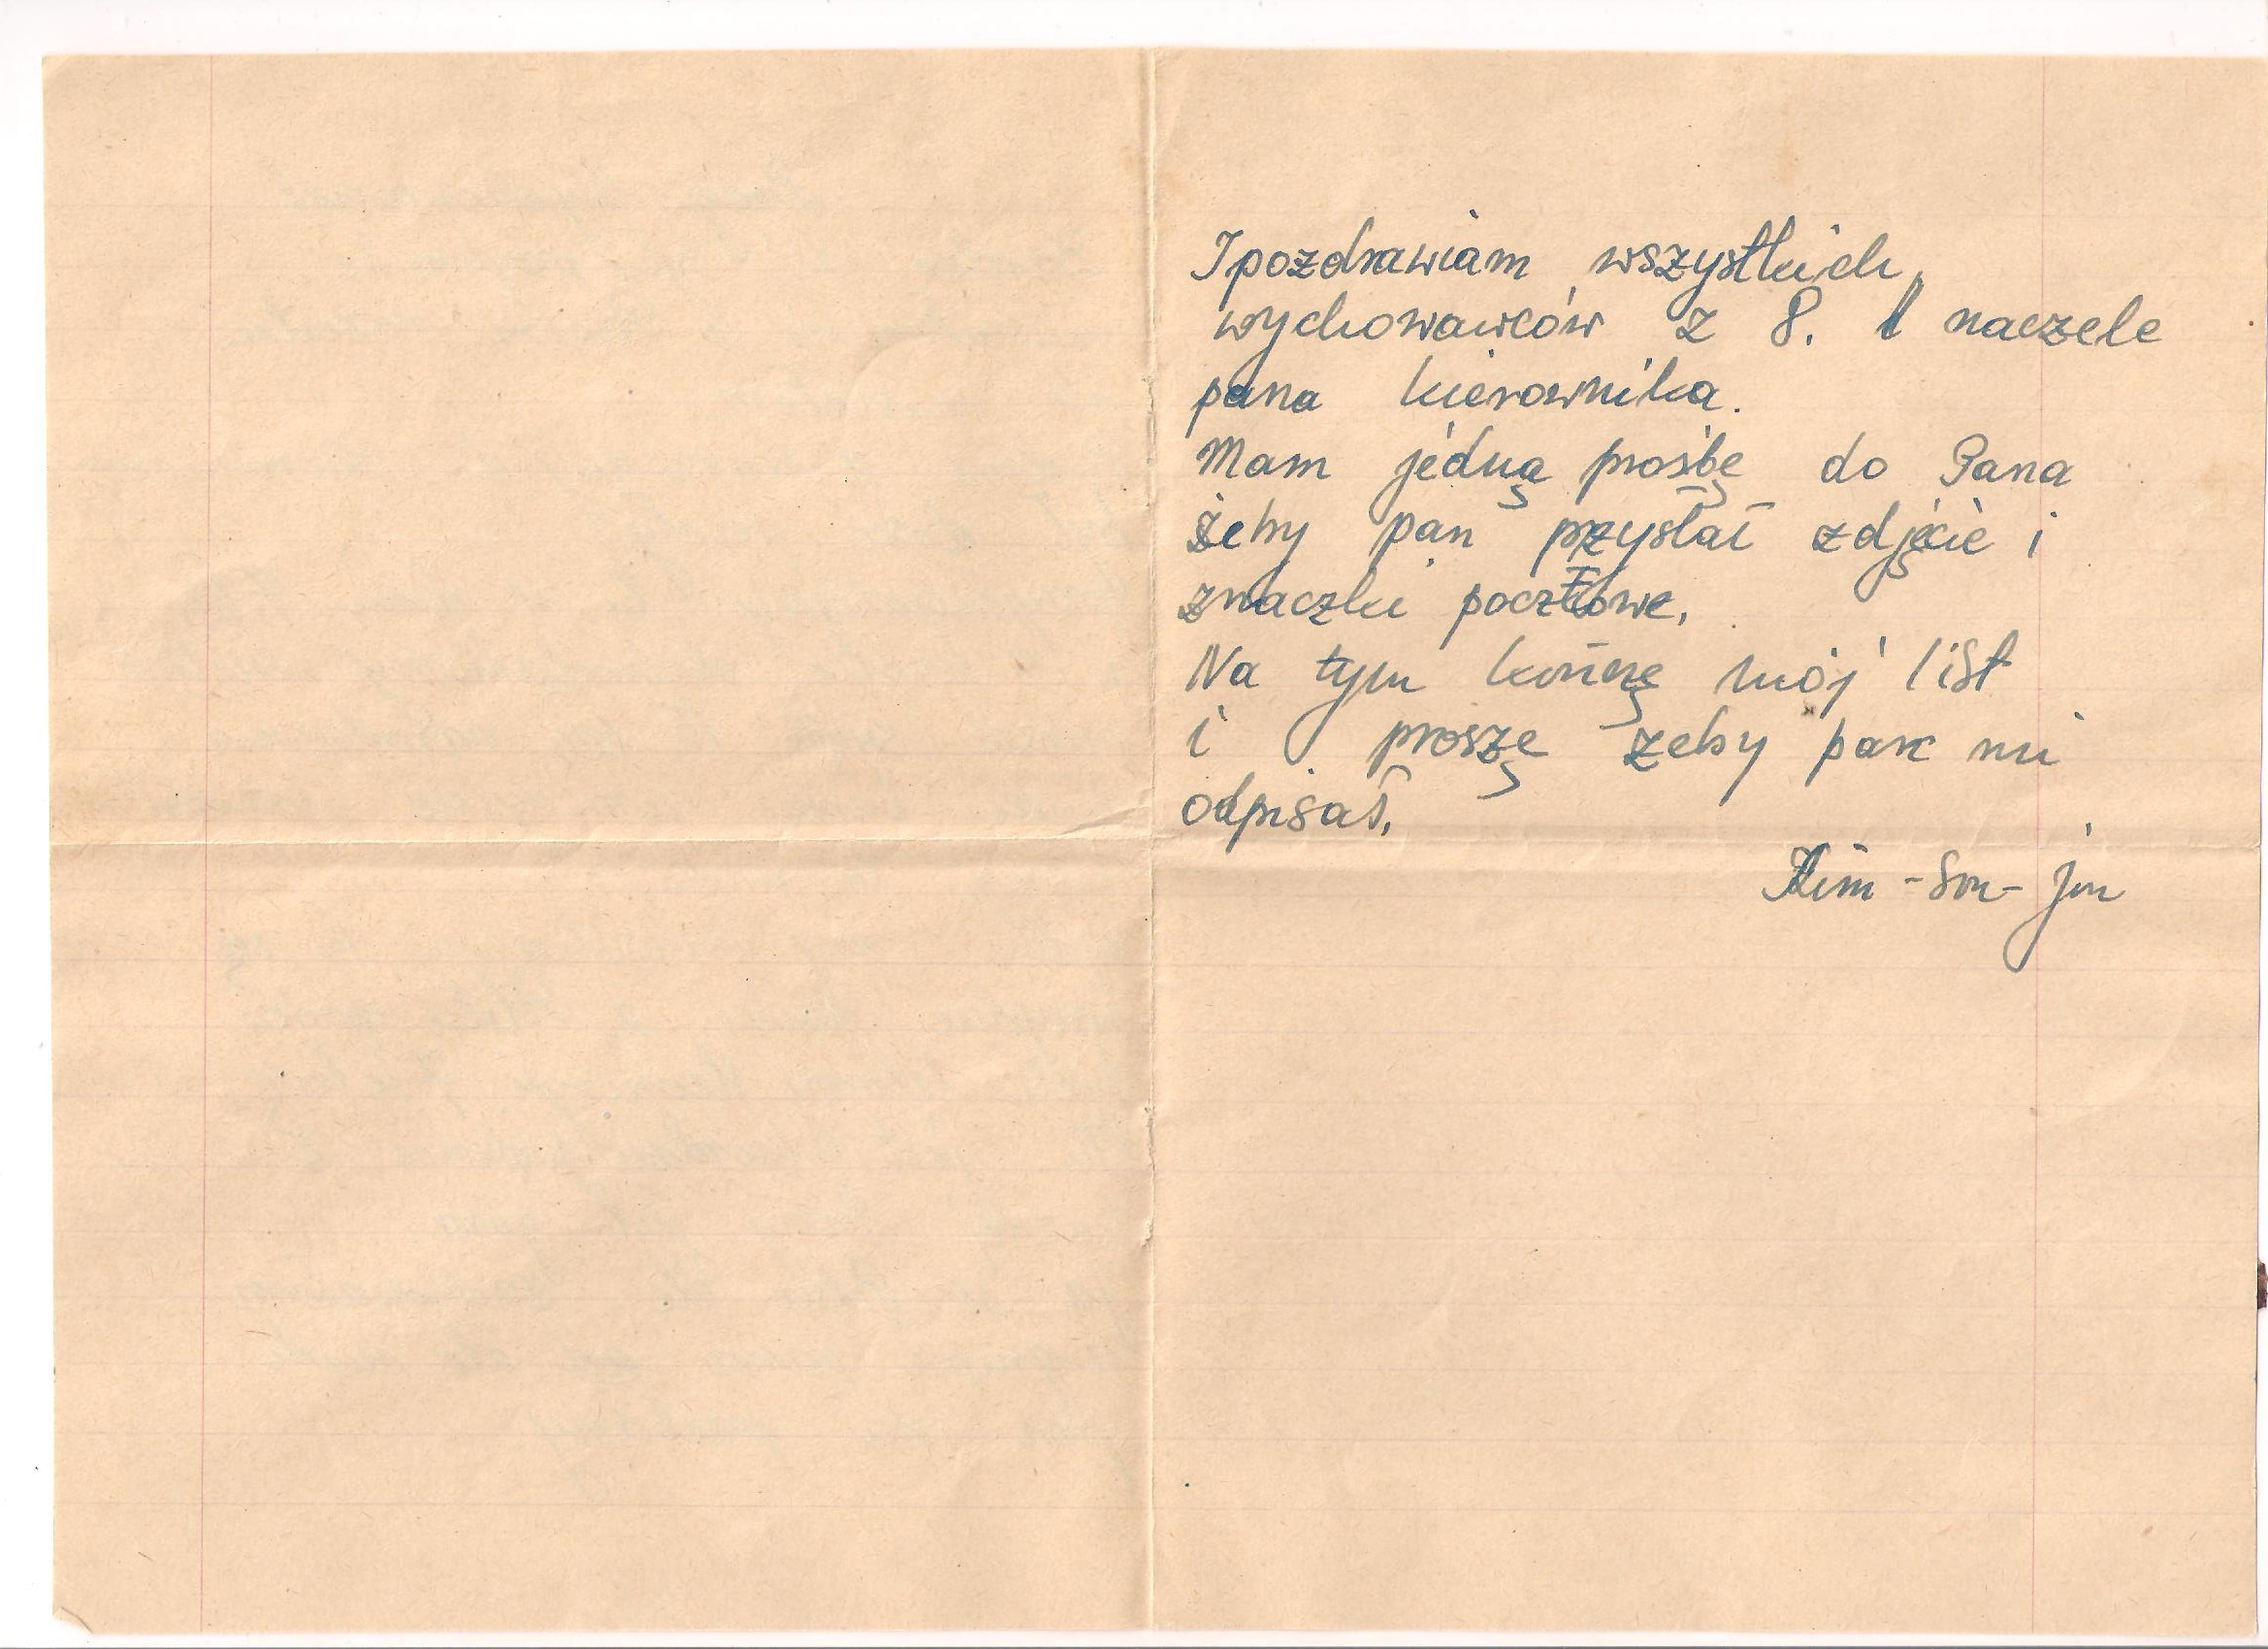 I pozdrawiam wszystkich
wychowawców z 8. naczele
pana kierownika.
Mam jedną prośbę do Pana
żeby pan przysłał zdjęcie i
znaczki pocztowe.
Na tym kończę mój list
i proszę żeby pan mi
odpisał.
Kim - Son - jon